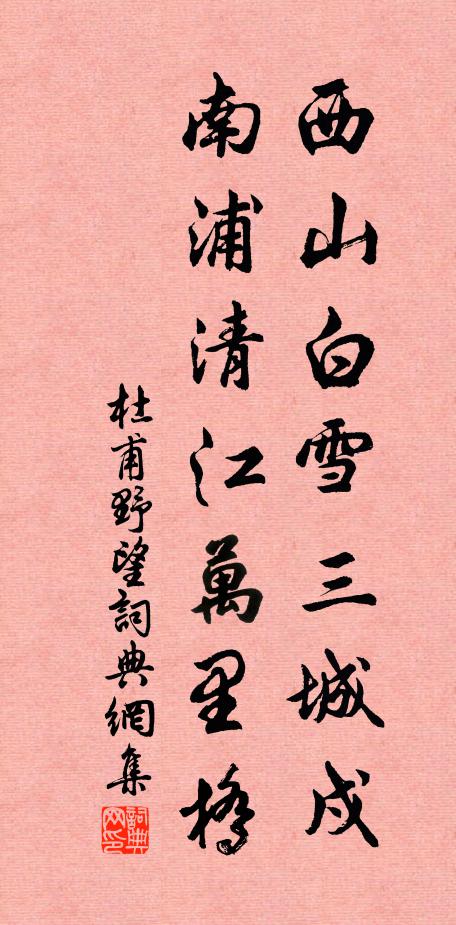 西山白雪三城戍
南浦清江萬里橋
杜甫野望詞典網集
詞典网印